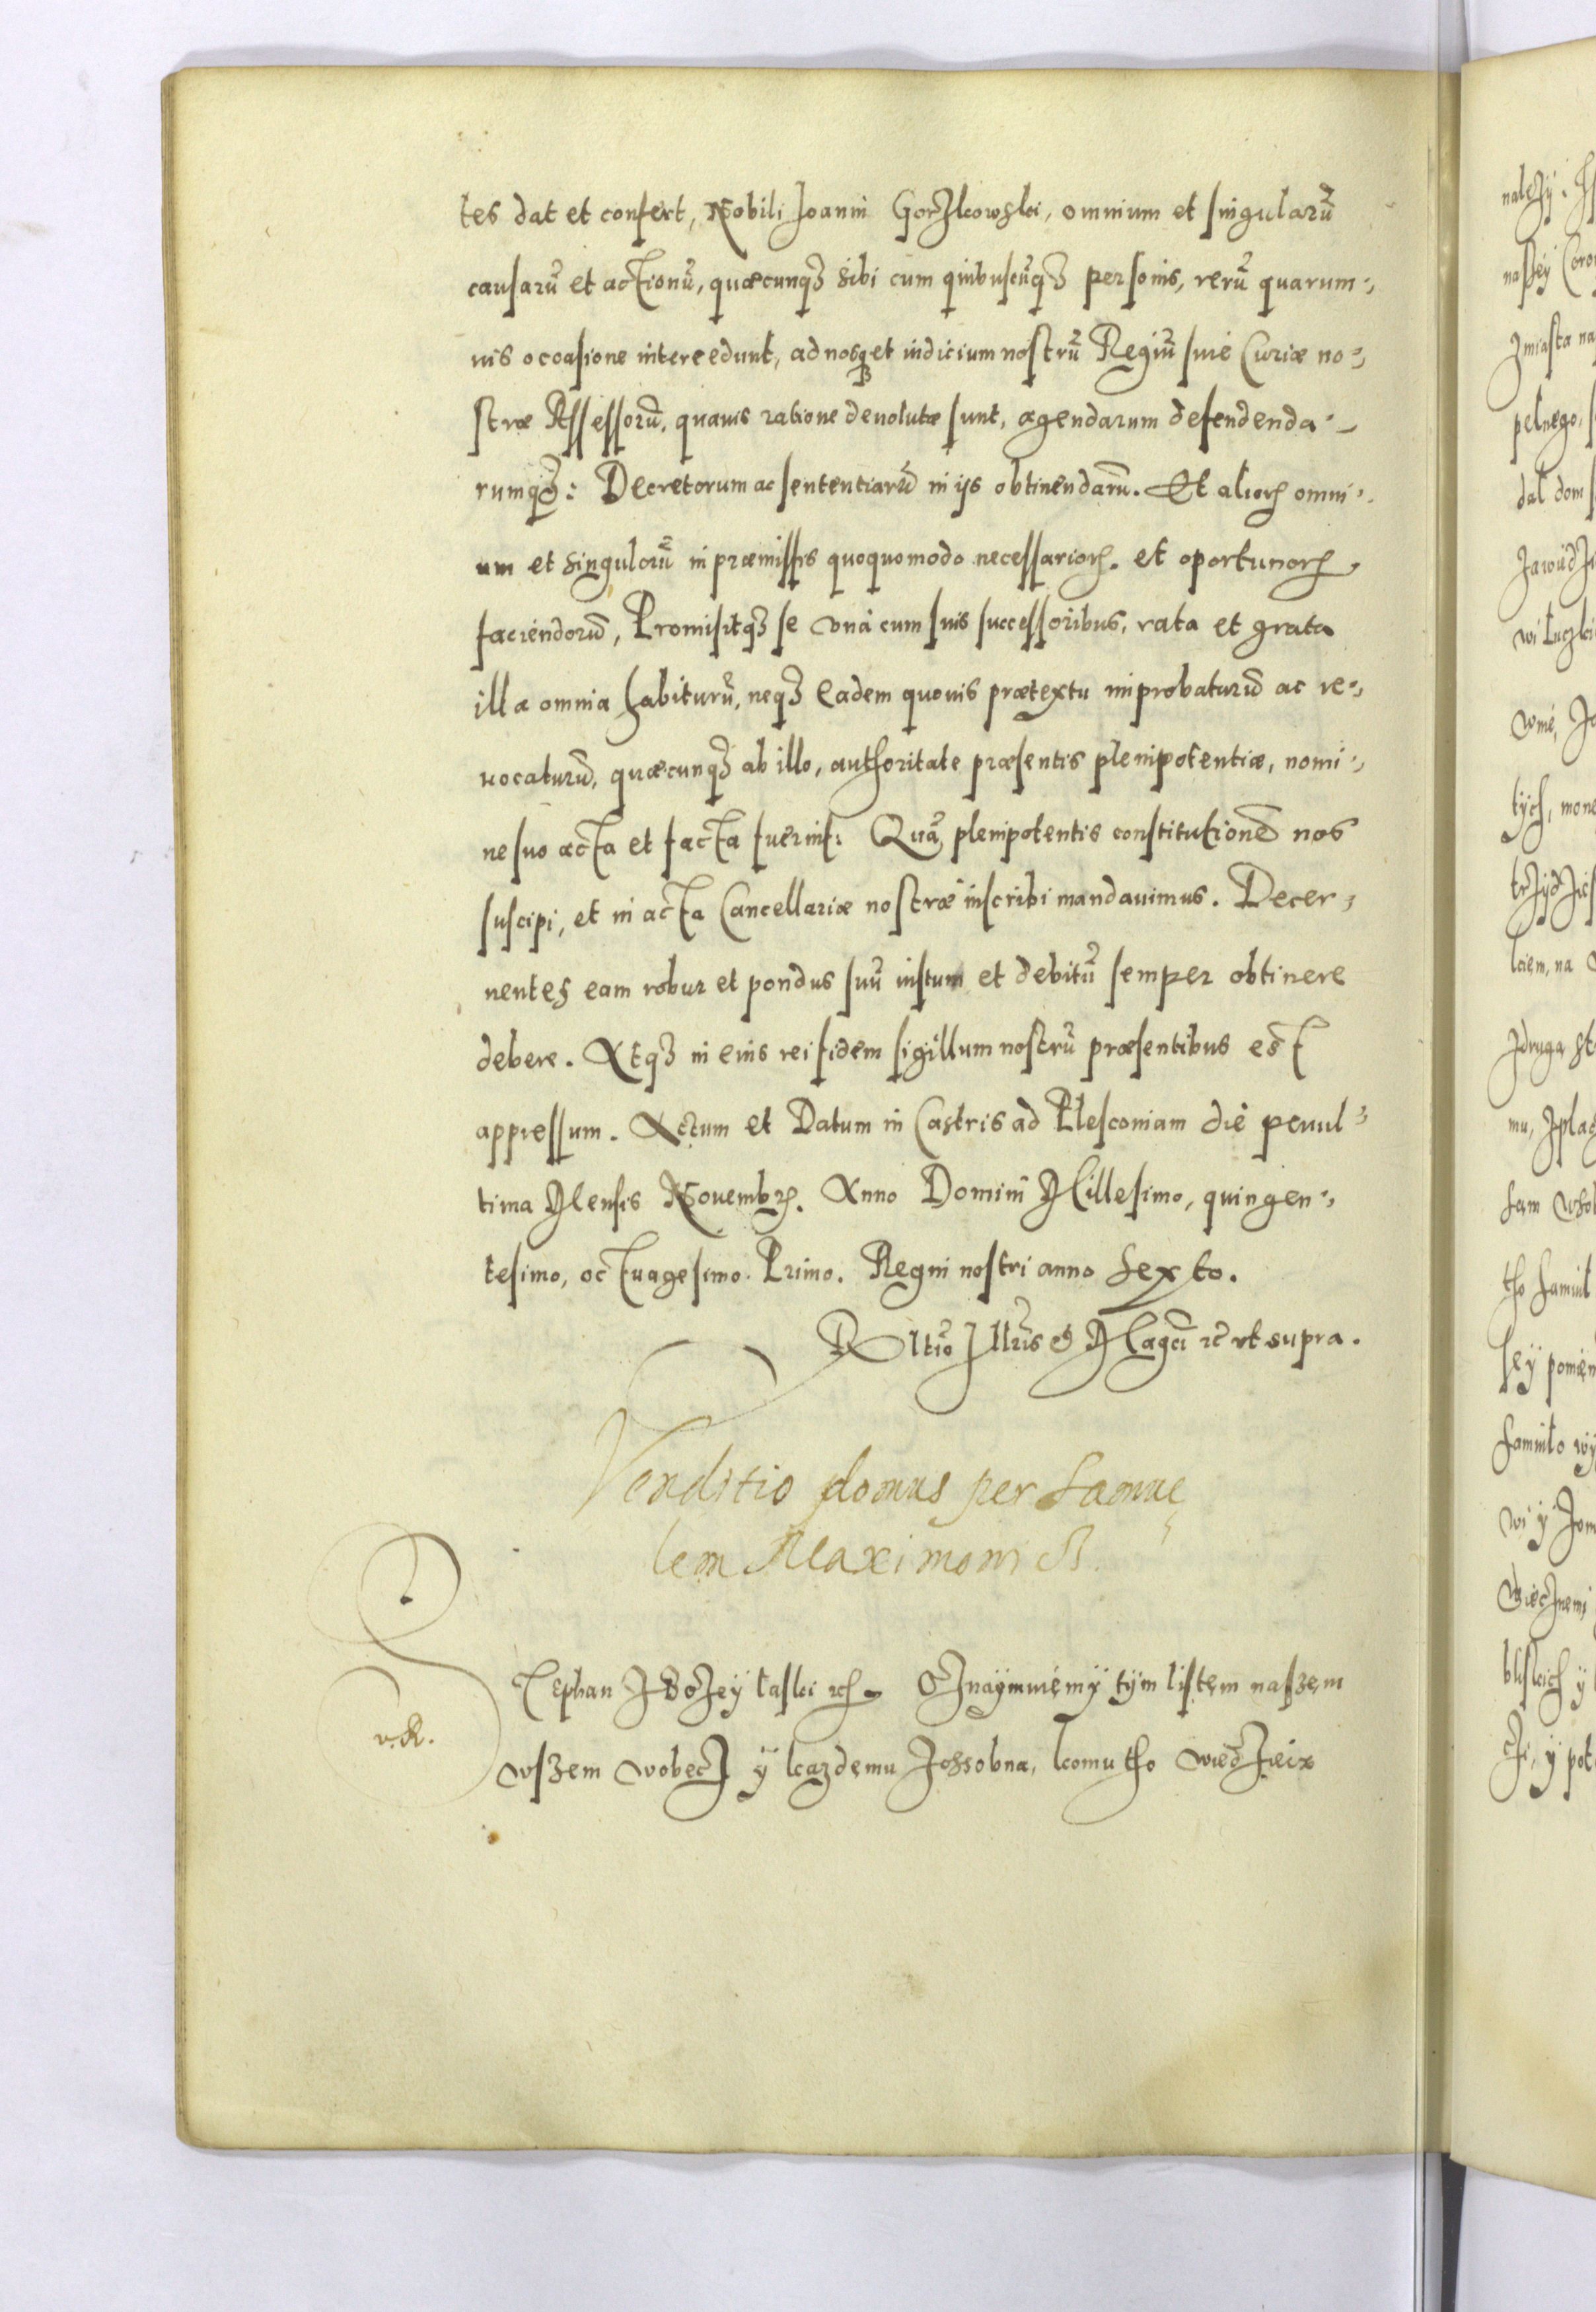 tes dat et confert, Nobili Joanni Gorzkowski, omnium et singularũ
causarũ et actionũ, quæcunq3 sibi cum quibuscũq3 personis, rerũ quarum-
uis occasione intercedunt, ad nosq3 et iudicium nostrũ Regiũ siue Curiæ no-
stræ Assessorũ, quauis ratione deuolutæ sunt, agendarum defendenda-
rumq3: Decretorum ac sententiarũ in ijs obtinendarũ. Et alior omni-
um et singulorũ in præmissis quoquomodo necessarior. et oportunor
faciendorũ, Promisitq3 se vnà cum suis successoribus, rata et grata
illa omnia habiturũ, neq3 eadem quouis prætextu improbaturũ ac re-
uocaturũ, quæcunq3 ab illo, authoritate præsentis plenipotentiæ, nomi-
ne suo acta et facta fuerint: Quã plenipotentis constitutionẽ nos
suscipi, et in acta Cancellariæ nostræ inscribi mandauimus. Decer-
nentes eam robur et pondus suũ iustum et debitũ semper obtinere
debere. Atq3 in eius rei fidem sigillum nostrũ præsentibus est
appressum. Actum et Datum in Castris ad Plesconiam die penul-
tima Mensis Nouembr. Anno Domini Millesimo, quingen-
tesimo, octuagesimo Primo. Regni nostri anno Sexto.
Rltio Illris & Magci rc vt supra.
Venditio domus per Samue
lem Maximom
Stephan Z Bozey laski rc Oznaymuiemÿ tÿm listem naszem
v.R.
wszem wobecz ÿ kazdemu Zossobna, komu tho wiedziec
nalezÿ.